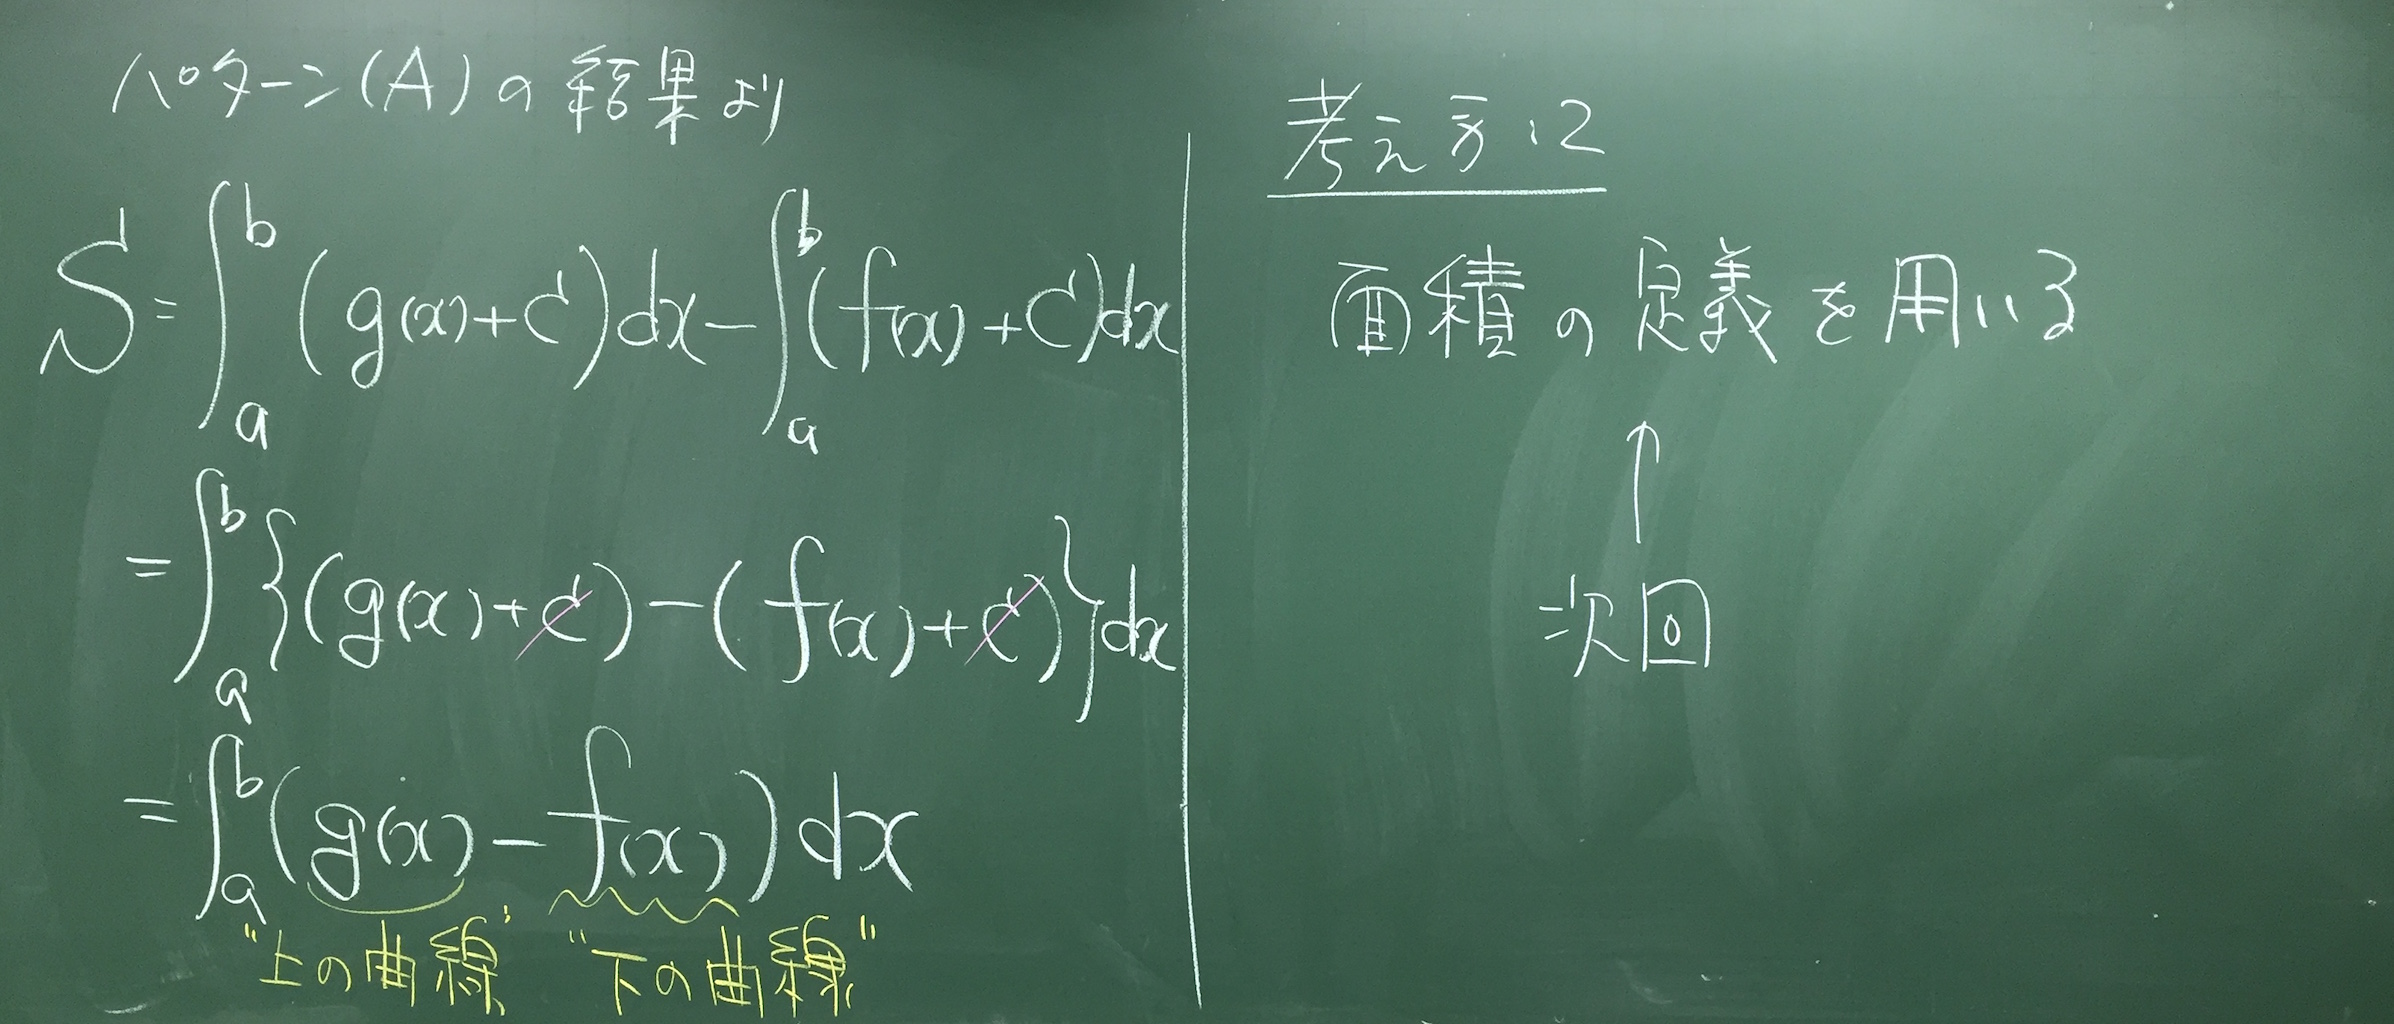 パターン(A)の結果より
S = ∫_a^b (g(x)+C)dx − ∫_a^b (f(x)+C)dx
= ∫_a^b {(g(x)+C)−(f(x)+C)}dx
= ∫_a^b (g(x)−f(x))dx
"上の曲線" "下の曲線"
考え方:2
面積の定義を用いる
↑
次回